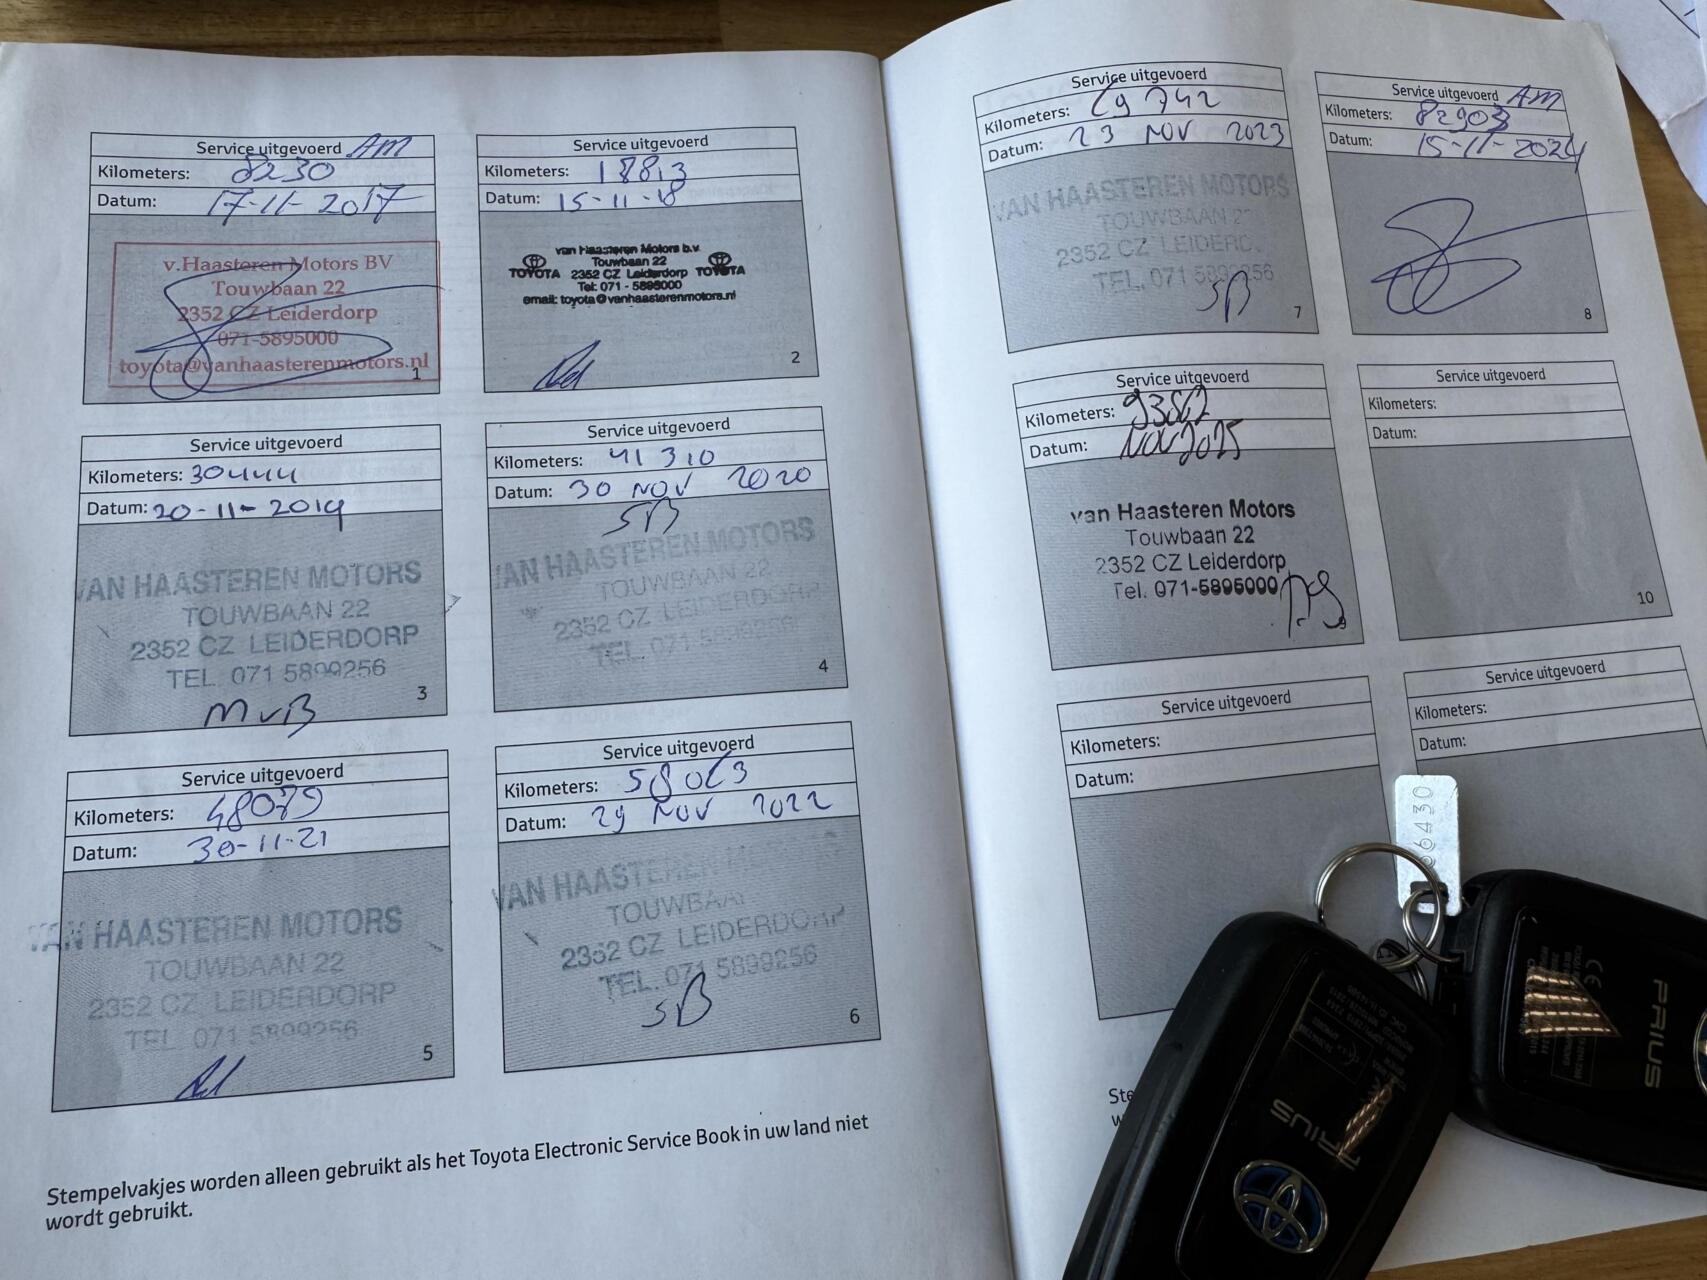 Service uitgevoerd AM
Kilometers: 8230
Datum: 17-11-2017
v.Haasteren Motors BV
Touwbaan 22
2352 CZ Leiderdorp
071-5895000
toyota@vanhaasterenmotors.nl
1
Service uitgevoerd
Kilometers:
Datum: 15-11-18
van Haasteren Motors b.v.
Touwbaan 22
TOYOTA 2352 CZ Leiderdorp TOYOTA
Tel: 071 - 5895000
email: toyota@vanhaasterenmotors.nl
2
Service uitgevoerd
Kilometers: 30444
Datum: 20-11-2019
VAN HAASTEREN MOTORS
TOUWBAAN 22
2352 CZ LEIDERDORP
TEL. 071 5899256
MvB
3
Service uitgevoerd
Kilometers: 41 310
Datum: 30 NOV 2020
SB
VAN HAASTEREN MOTORS
TOUWBAAN 22
2352 CZ LEIDERDORP
TEL. 071 5899256
4
Service uitgevoerd
Kilometers: 48079
Datum: 30-11-21
VAN HAASTEREN MOTORS
TOUWBAAN 22
2352 CZ LEIDERDORP
TEL. 071 5899256
5
Service uitgevoerd
Kilometers: 58063
Datum: 29 NOV 2022
VAN HAASTEREN
TOUWBAAN
2352 CZ LEIDERDORP
TEL. 071 5899256
SB
6
Stempelvakjes worden alleen gebruikt als het Toyota Electronic Service Book in uw land niet
wordt gebruikt.
Service uitgevoerd
Kilometers: 69 742
Datum: 23 NOV 2023
VAN HAASTEREN MOTORS
TOUWBAAN 2
2352 CZ LEIDERD
TEL. 071 5899256
SB
7
Service uitgevoerd AM
Kilometers: 82903
Datum: 15-11-2024
8
Service uitgevoerd
Kilometers:
Datum: NOV 2025
van Haasteren Motors
Touwbaan 22
2352 CZ Leiderdorp
Tel. 071-5895000
Service uitgevoerd
Kilometers:
Datum:
10
Service uitgevoerd
Kilometers:
Datum:
Service uitgevoerd
Kilometers:
Datum:
66430
PRIUS
PRIUS